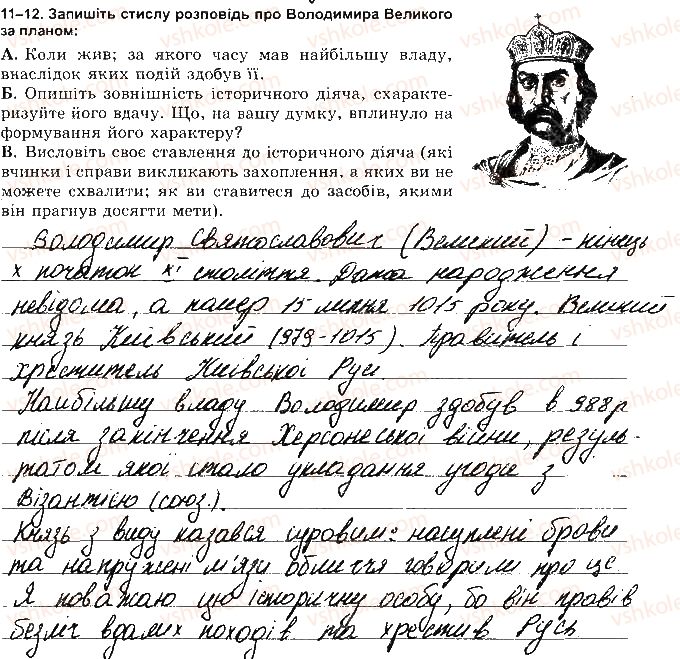 11–12. Запишіть стислу розповідь про Володимира Великого
за планом:
А. Коли жив; за якого часу мав найбільшу владу,
внаслідок яких подій здобув її.
Б. Опишіть зовнішність історичного діяча, схаракте-
ризуйте його вдачу. Що, на вашу думку, вплинуло на
формування його характеру?
В. Висловіть своє ставлення до історичного діяча (які
вчинки і справи викликають захоплення, а яких ви не
можете схвалити; як ви ставитеся до засобів, якими
він прагнув досягти мети).
Володимир Святославович (Великий) – кінець
X початок XI століття. Дата народження
невідома, а помер 15 липня 1015 року. Великий
князь Київський (979-1015). Правитель і
хреститель Київської Руси
Найбільшу владу Володимир здобув в 988р
після закінчення Херсонеської війни, резуль-
татом якої стало укладання угоди з
Візантією (союз.).
Князь з виду казався суровим: насуплені брови
та напружені м'язи обличчя говорили про це
Я поважаю цю історичну особу, бо він провів
безліч вдалих походів та хрестив Русь
vshkole.com